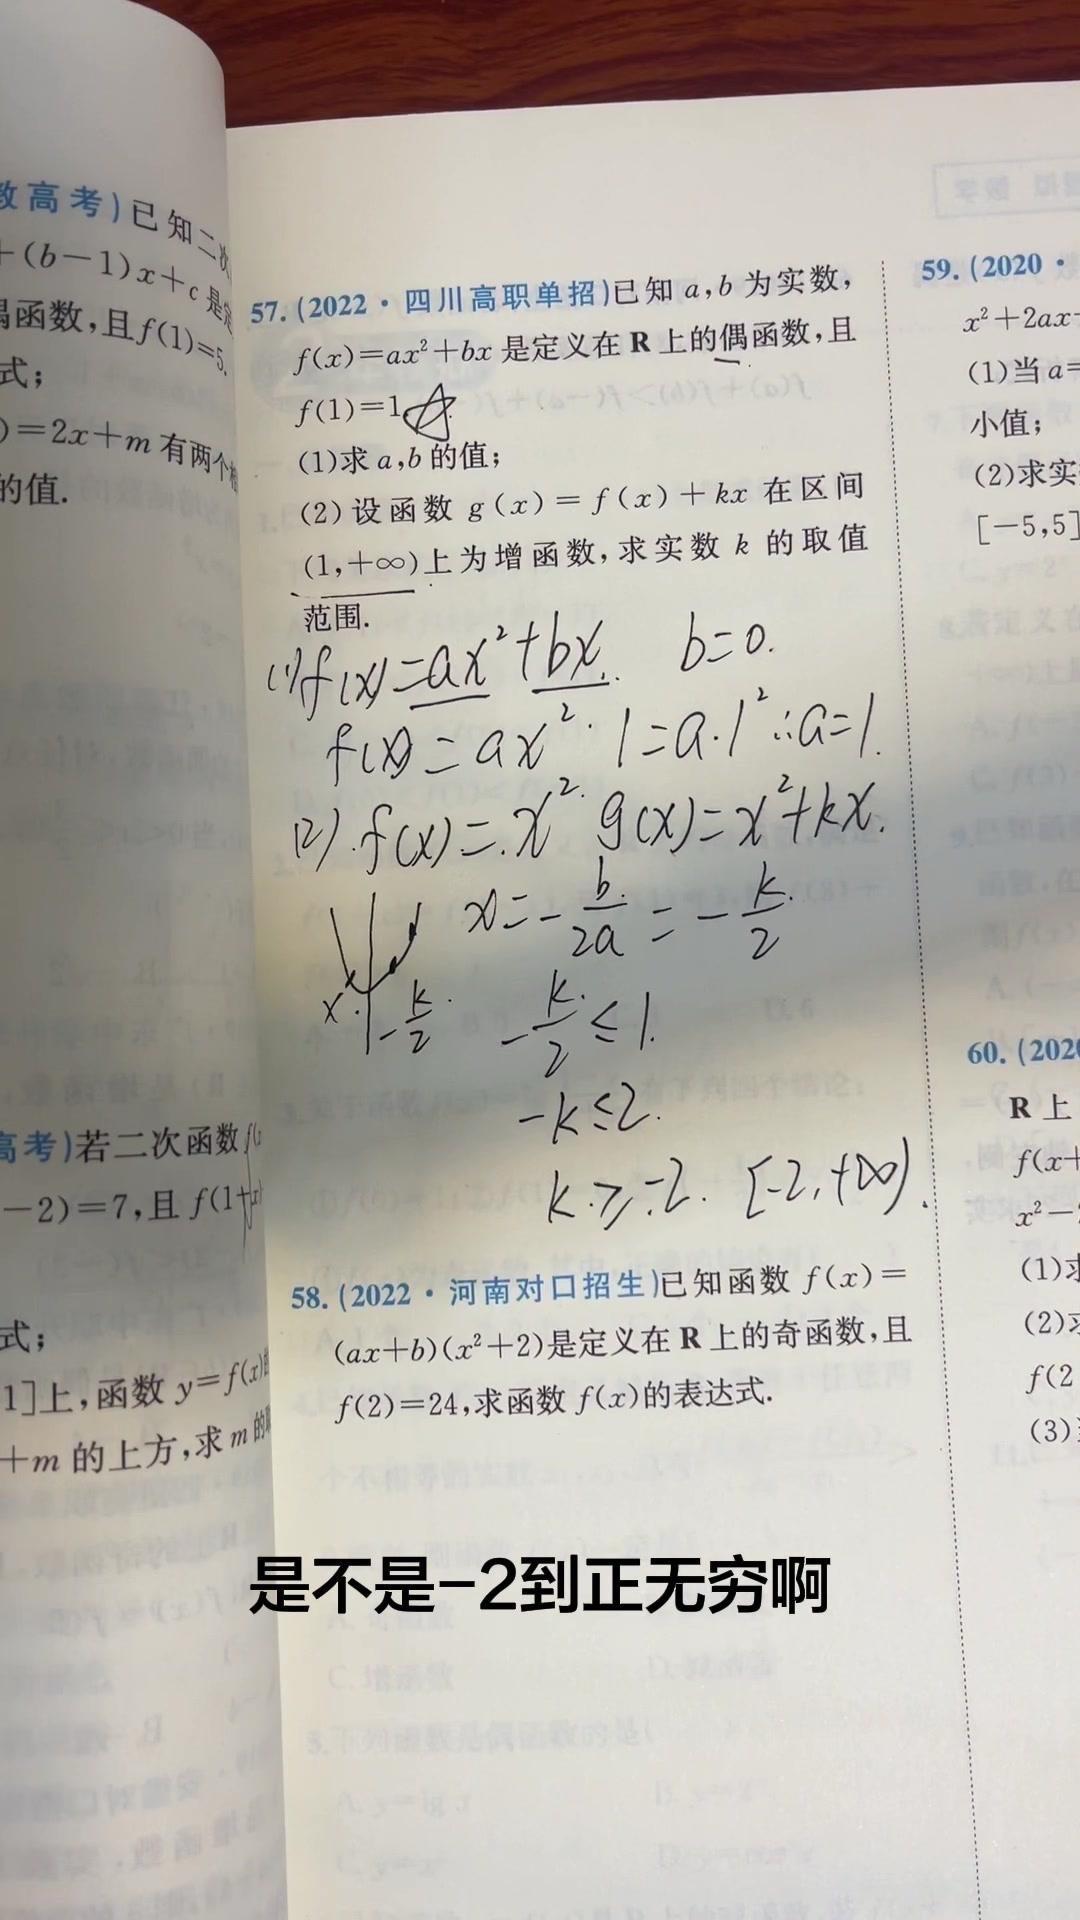 教高考)已知二次
+(b－1)x＋c是定
偶函数,且f(1)=5.
式;
)=2x+m有两个相
的值.
高考)若二次函数f(x
－2)=7,且f(1+x)
式;
1]上,函数y=f(x)的
+m的上方,求m的取
57.(2022·四川高职单招)已知a,b为实数,
f(x)=ax²+bx是定义在R上的偶函数,且
f(1)=1
(1)求a,b的值;
(2)设函数g(x)=f(x)+kx在区间
(1,+∞)上为增函数,求实数k的取值
范围.
(1)f(x)=ax²+bx. b=0.
f(x)=ax². 1=a·1²∴a=1.
(2).f(x)=x². g(x)=x²+kx.
x=-b/2a=-k/2
x. -k/2 -k/2≤1.
-k≤2.
k≥-2. [-2,+∞).
58.(2022·河南对口招生)已知函数f(x)=
(ax+b)(x²+2)是定义在R上的奇函数,且
f(2)=24,求函数f(x)的表达式.
是不是-2到正无穷啊
59.(2020·
x²+2ax
(1)当a=
小值;
(2)求实
[－5,5]
60.(2020
R上
f(x+
x²－
(1)求
(2)求
f(2
(3)